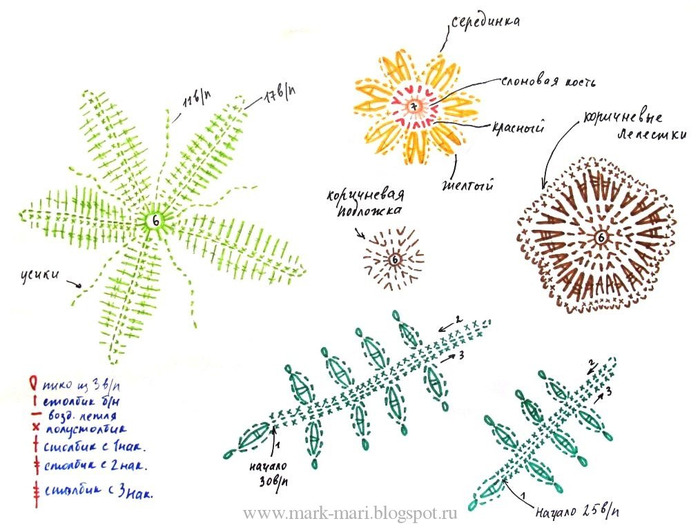 серединка
11в/п
17в/п
слоновая кость
7
красный
желтый
коричневые
лепестки
коричневая
подложка
6
6
6
усики
2
3
1
начало
30в/п
2
3
1
начало 25в/п
пико из 3в/п
столбик б/н
возд. петля
полустолбик
столбик с 1нак.
столбик с 2нак.
столбик с 3нак.
www.mark-mari.blogspot.ru